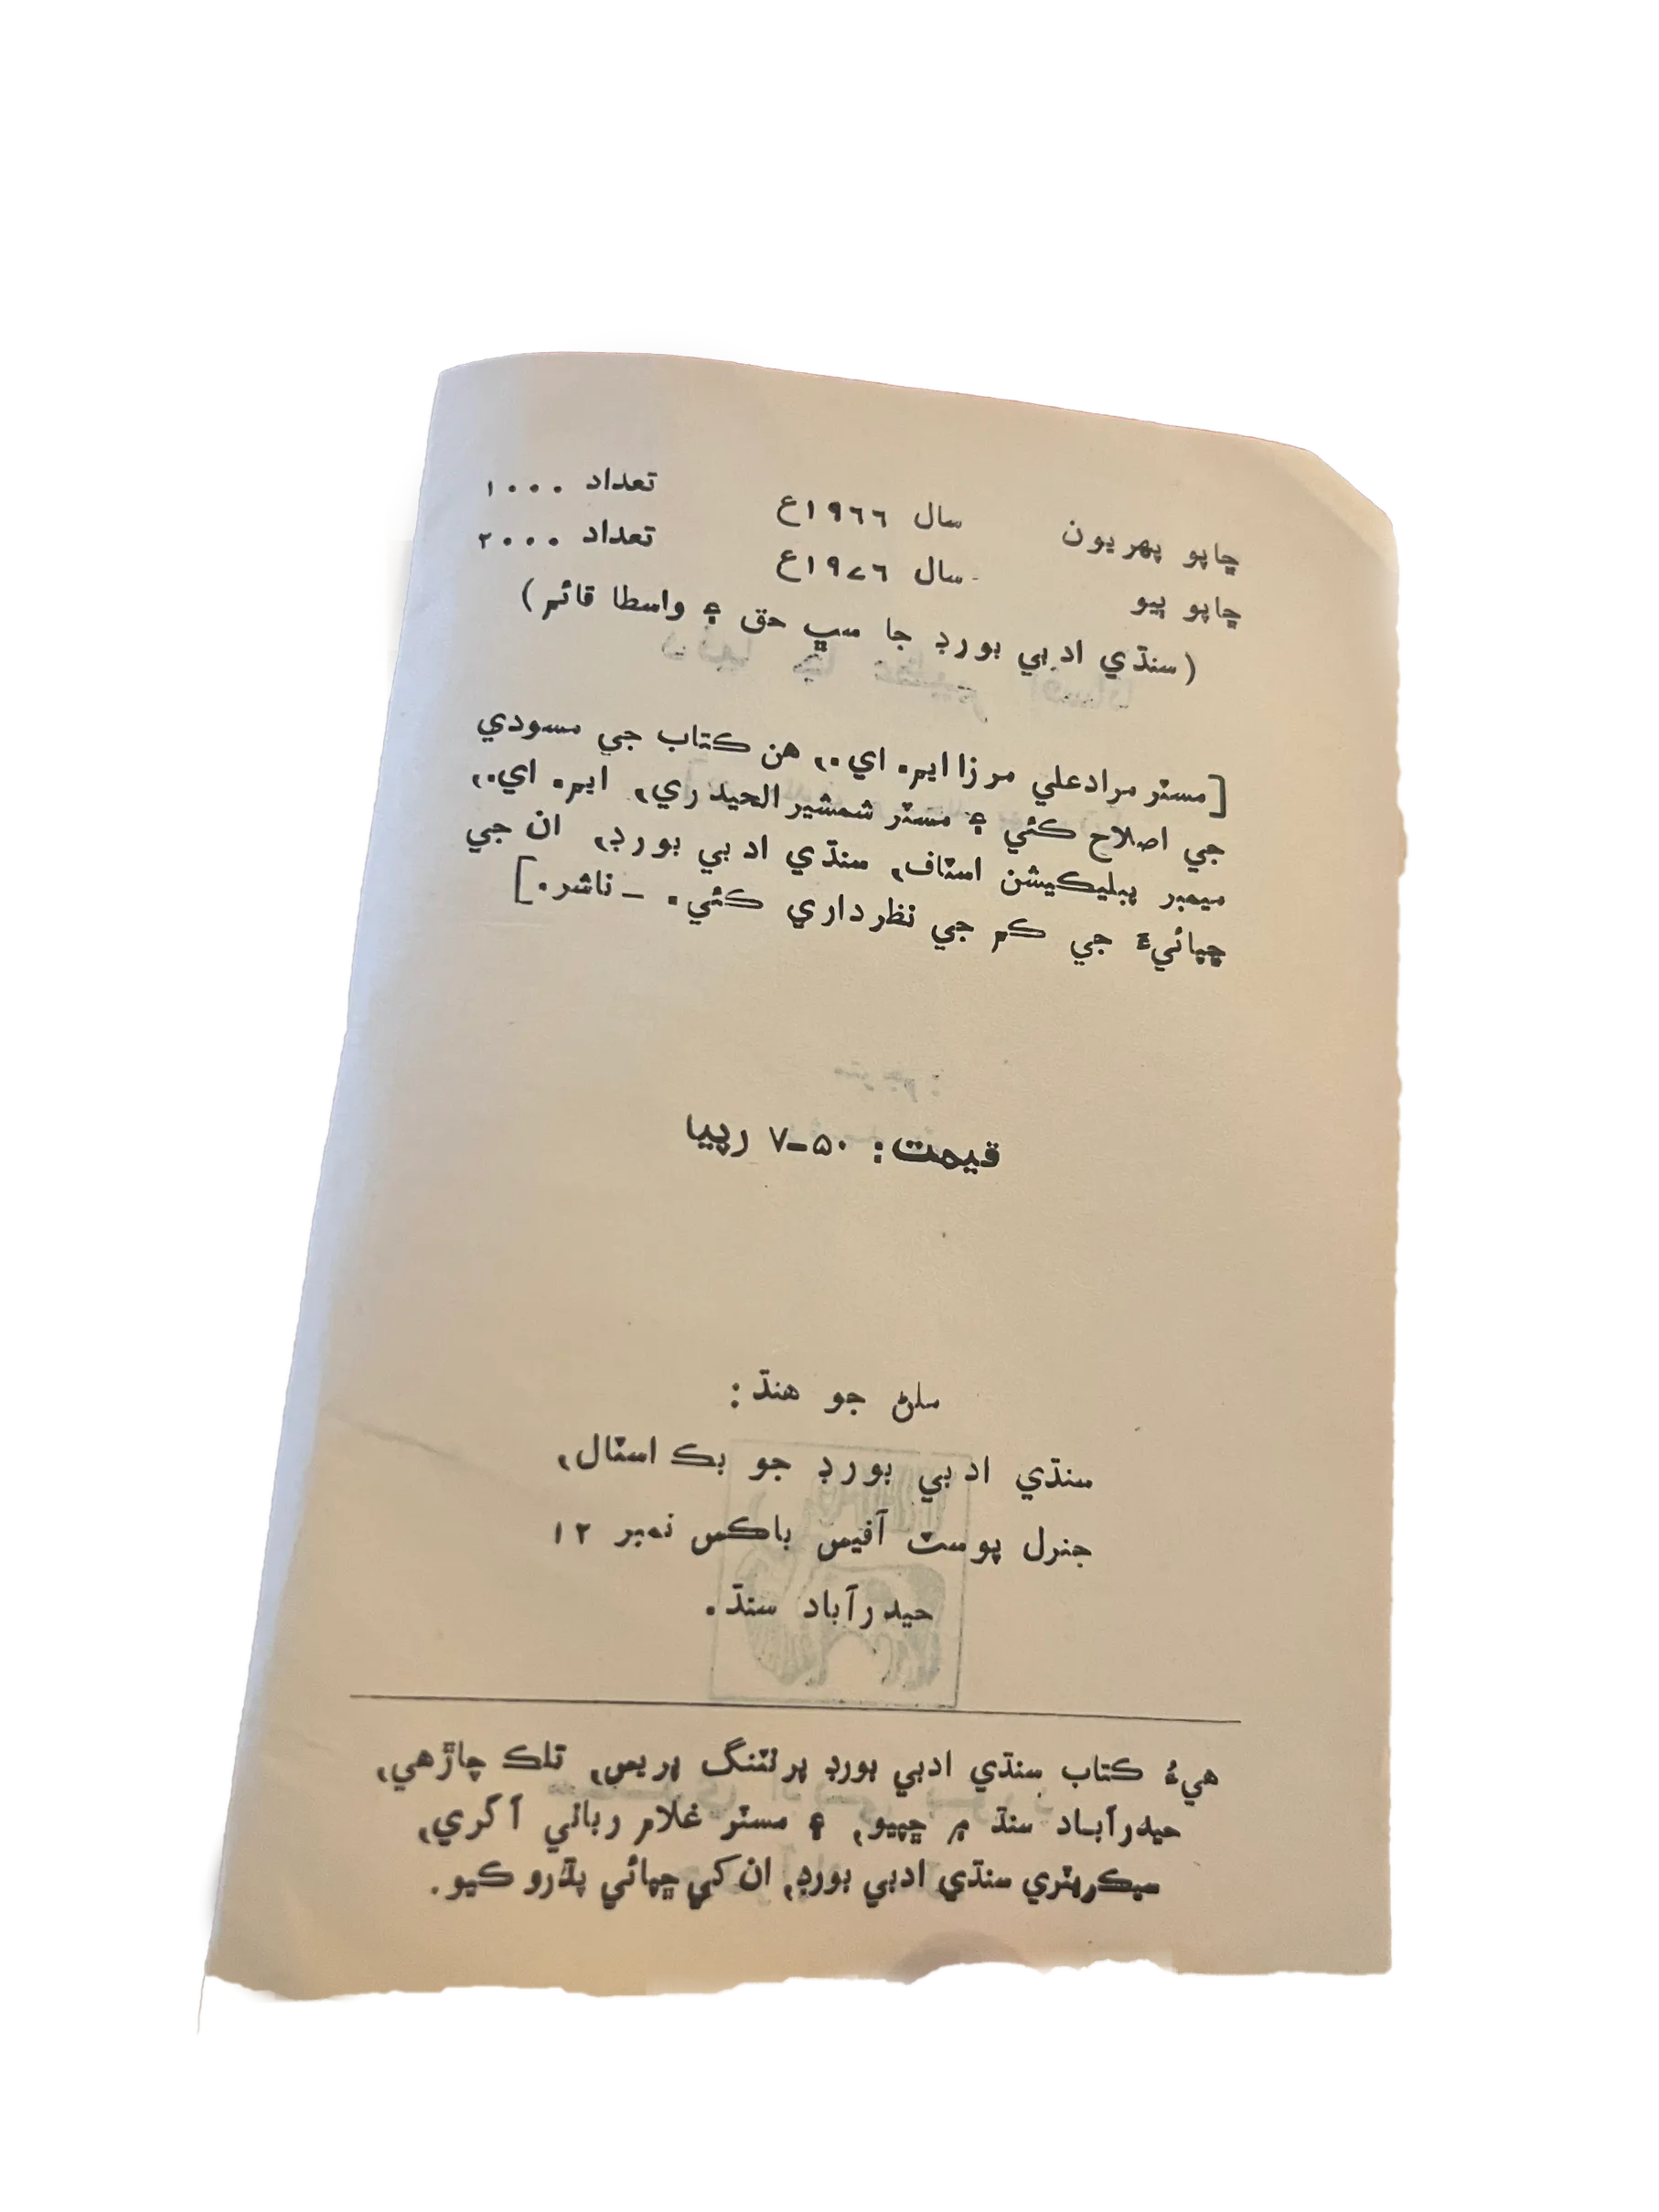 ڇاپو پهريون سال ١٩٦٦ع تعداد ١٠٠٠
ڇاپو ٻيو سال ١٩٧٦ع تعداد ٢٠٠٠
(سنڌي ادبي بورڊ جا سڀ حق ۽ واسطا قائم)
[مسٽر مرادعلي مرزا ايم. اي.، هن ڪتاب جي مسودي
جي اصلاح ڪئي ۽ مسٽر شمشيرالحيدري، ايم. اي.،
ميمبر پبليڪيشن اسٽاف، سنڌي ادبي بورڊ، ان جي
ڇپائيءَ جي ڪم جي نظرداري ڪئي. ــ ناشر.]
قيمت: ٥٠ــ٧ رپيا
ملڻ جو هنڌ:
سنڌي ادبي بورڊ جو بڪ اسٽال،
جنرل پوسٽ آفيس باڪس نمبر ١٢
حيدرآباد سنڌ.
هيءُ ڪتاب سنڌي ادبي بورڊ پرنٽنگ پريس، تلڪ چاڙهي،
حيدرآباد سنڌ ۾ ڇپيو، ۽ مسٽر غلام رباني آگري،
سيڪريٽري سنڌي ادبي بورڊ، ان کي ڇپائي پڌرو ڪيو.